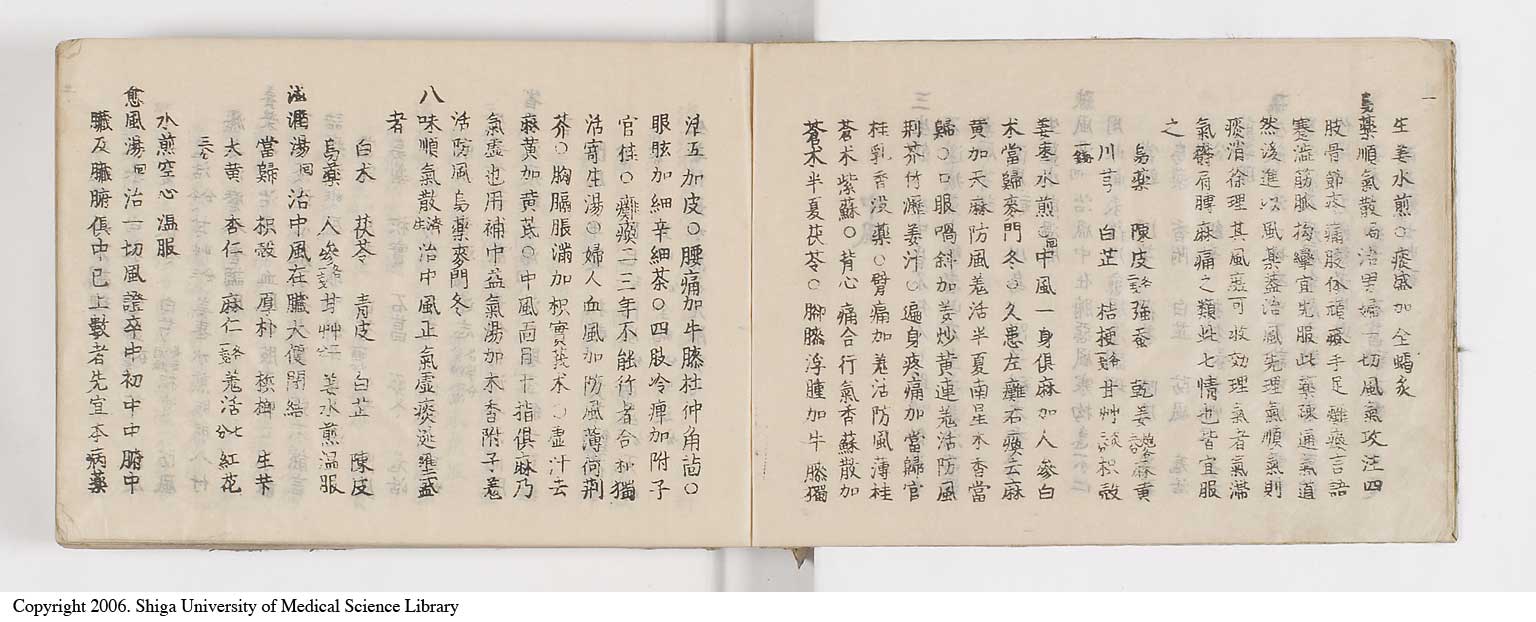 生姜水煎〇痰盛加全蝎炙
一
烏藥順氣散 治男婦一切風氣攻注四
肢骨節疼痛肢体頑麻手足癱瘓言語
蹇澁筋脉拘攣宜先服此藥疎通氣道
然後進以風藥蓋治風先理氣氣順則
痰消徐理其風庶可收効理氣者氣滯
氣欝肩膊麻痛之類此七情也皆宜服
之
烏藥 陳皮 強蚕 乾姜 麻黄
川芎 白芷 桔梗 甘艸 枳殻
姜枣水煎〇中風一身俱麻加人參白
术當歸麥門冬〇久患左癱右瘓去麻
黄加天麻防風羗活半夏南星木香當
歸〇口眼喎斜加姜炒黄連羗活防風
荆芥竹瀝姜汁〇遍身疼痛加當歸官
桂乳香没藥〇臂痛加羗活防風薄桂
蒼术紫蘇〇背心痛合行氣香蘇散加
蒼术半夏茯苓〇脚膝浮腫加牛膝獨
活五加皮〇腰痛加牛膝杜仲角茴〇
眼眩加細辛細茶〇四肢冷痺加附子
官桂〇癱瘓二三年不能行者合和獨
活寄生湯〇婦人血風加防風薄荷荆
芥〇胸膈脹滿加枳實莪术〇虚汗去
麻黄加黄芪〇中風面目十指俱麻乃
氣虚也用補中益氣湯加木香附子羗
活防風烏藥麥門冬
八味順氣散 濟生 治中風正氣虚痰涎壅盛
者
白术 茯苓 青皮 白芷 陳皮
烏藥 人參 甘艸 姜水煎温服
滋潤湯 回 治中風在臟大便閉結
當歸 枳殻 厚朴 檳榔 生芐
大黄 杏仁 麻仁 羗活 七分 紅花 三分
水煎空心温服
愈風湯 回 治一切風證卒中初中中腑中
臟及臟腑俱中已上數者先宜本病藥